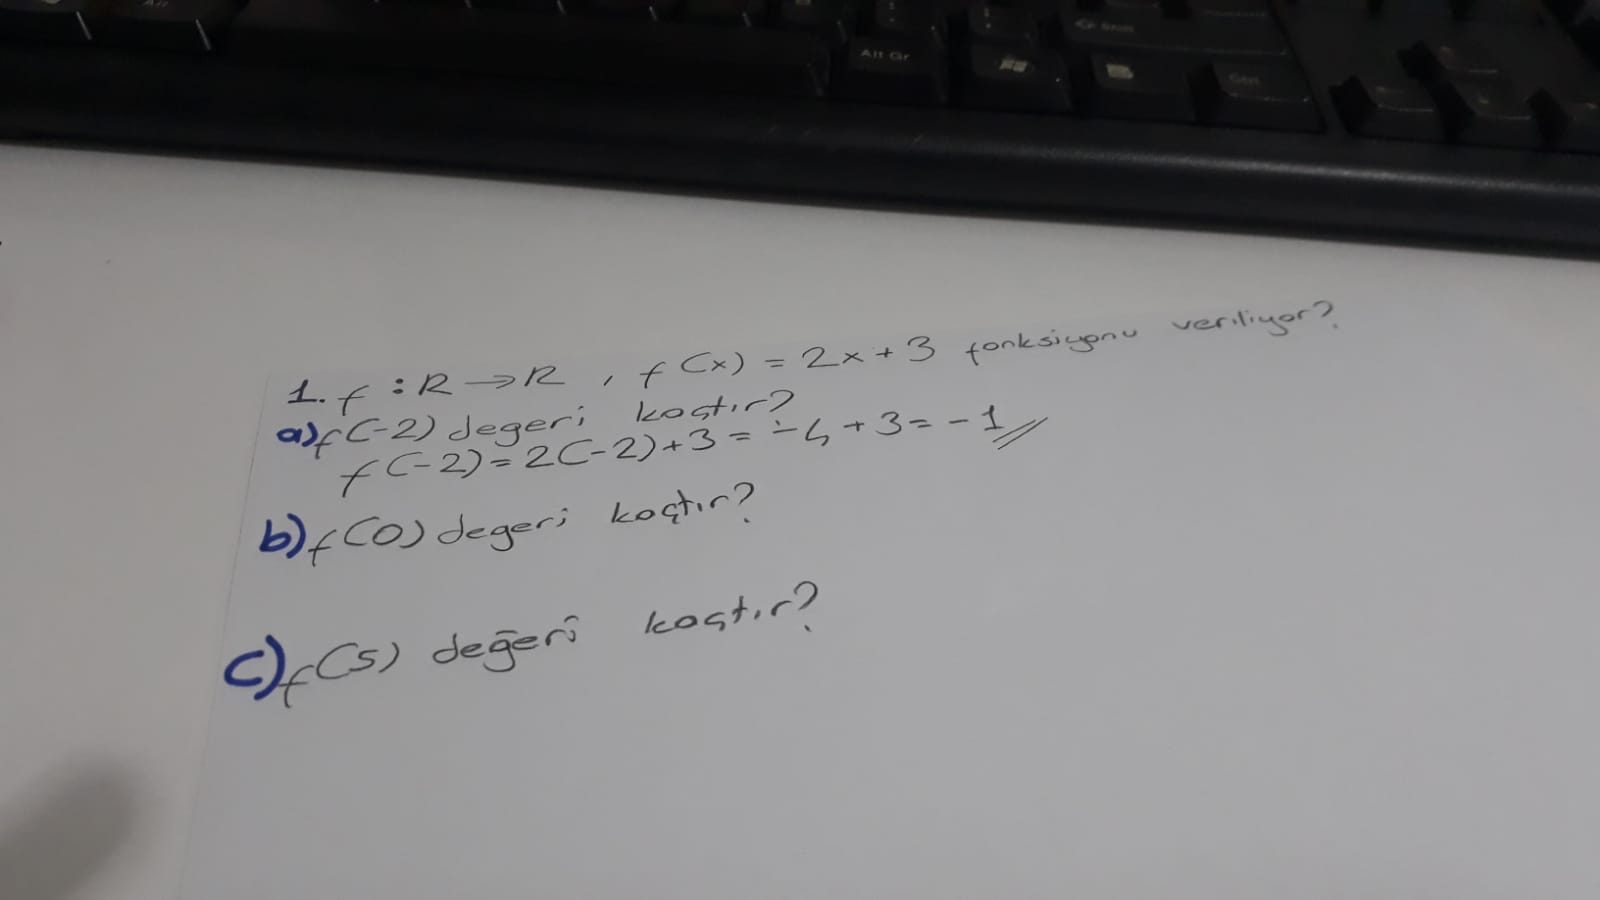 Alt Gr
Shift
Ctrl
1. f : R → R , f(x) = 2x + 3 fonksiyonu veriliyor?
a) f(-2) degeri kaçtır?
f(-2) = 2(-2) + 3 = -4 + 3 = -1
b) f(0) degeri kaçtır?
c) f(5) değeri kaçtır?